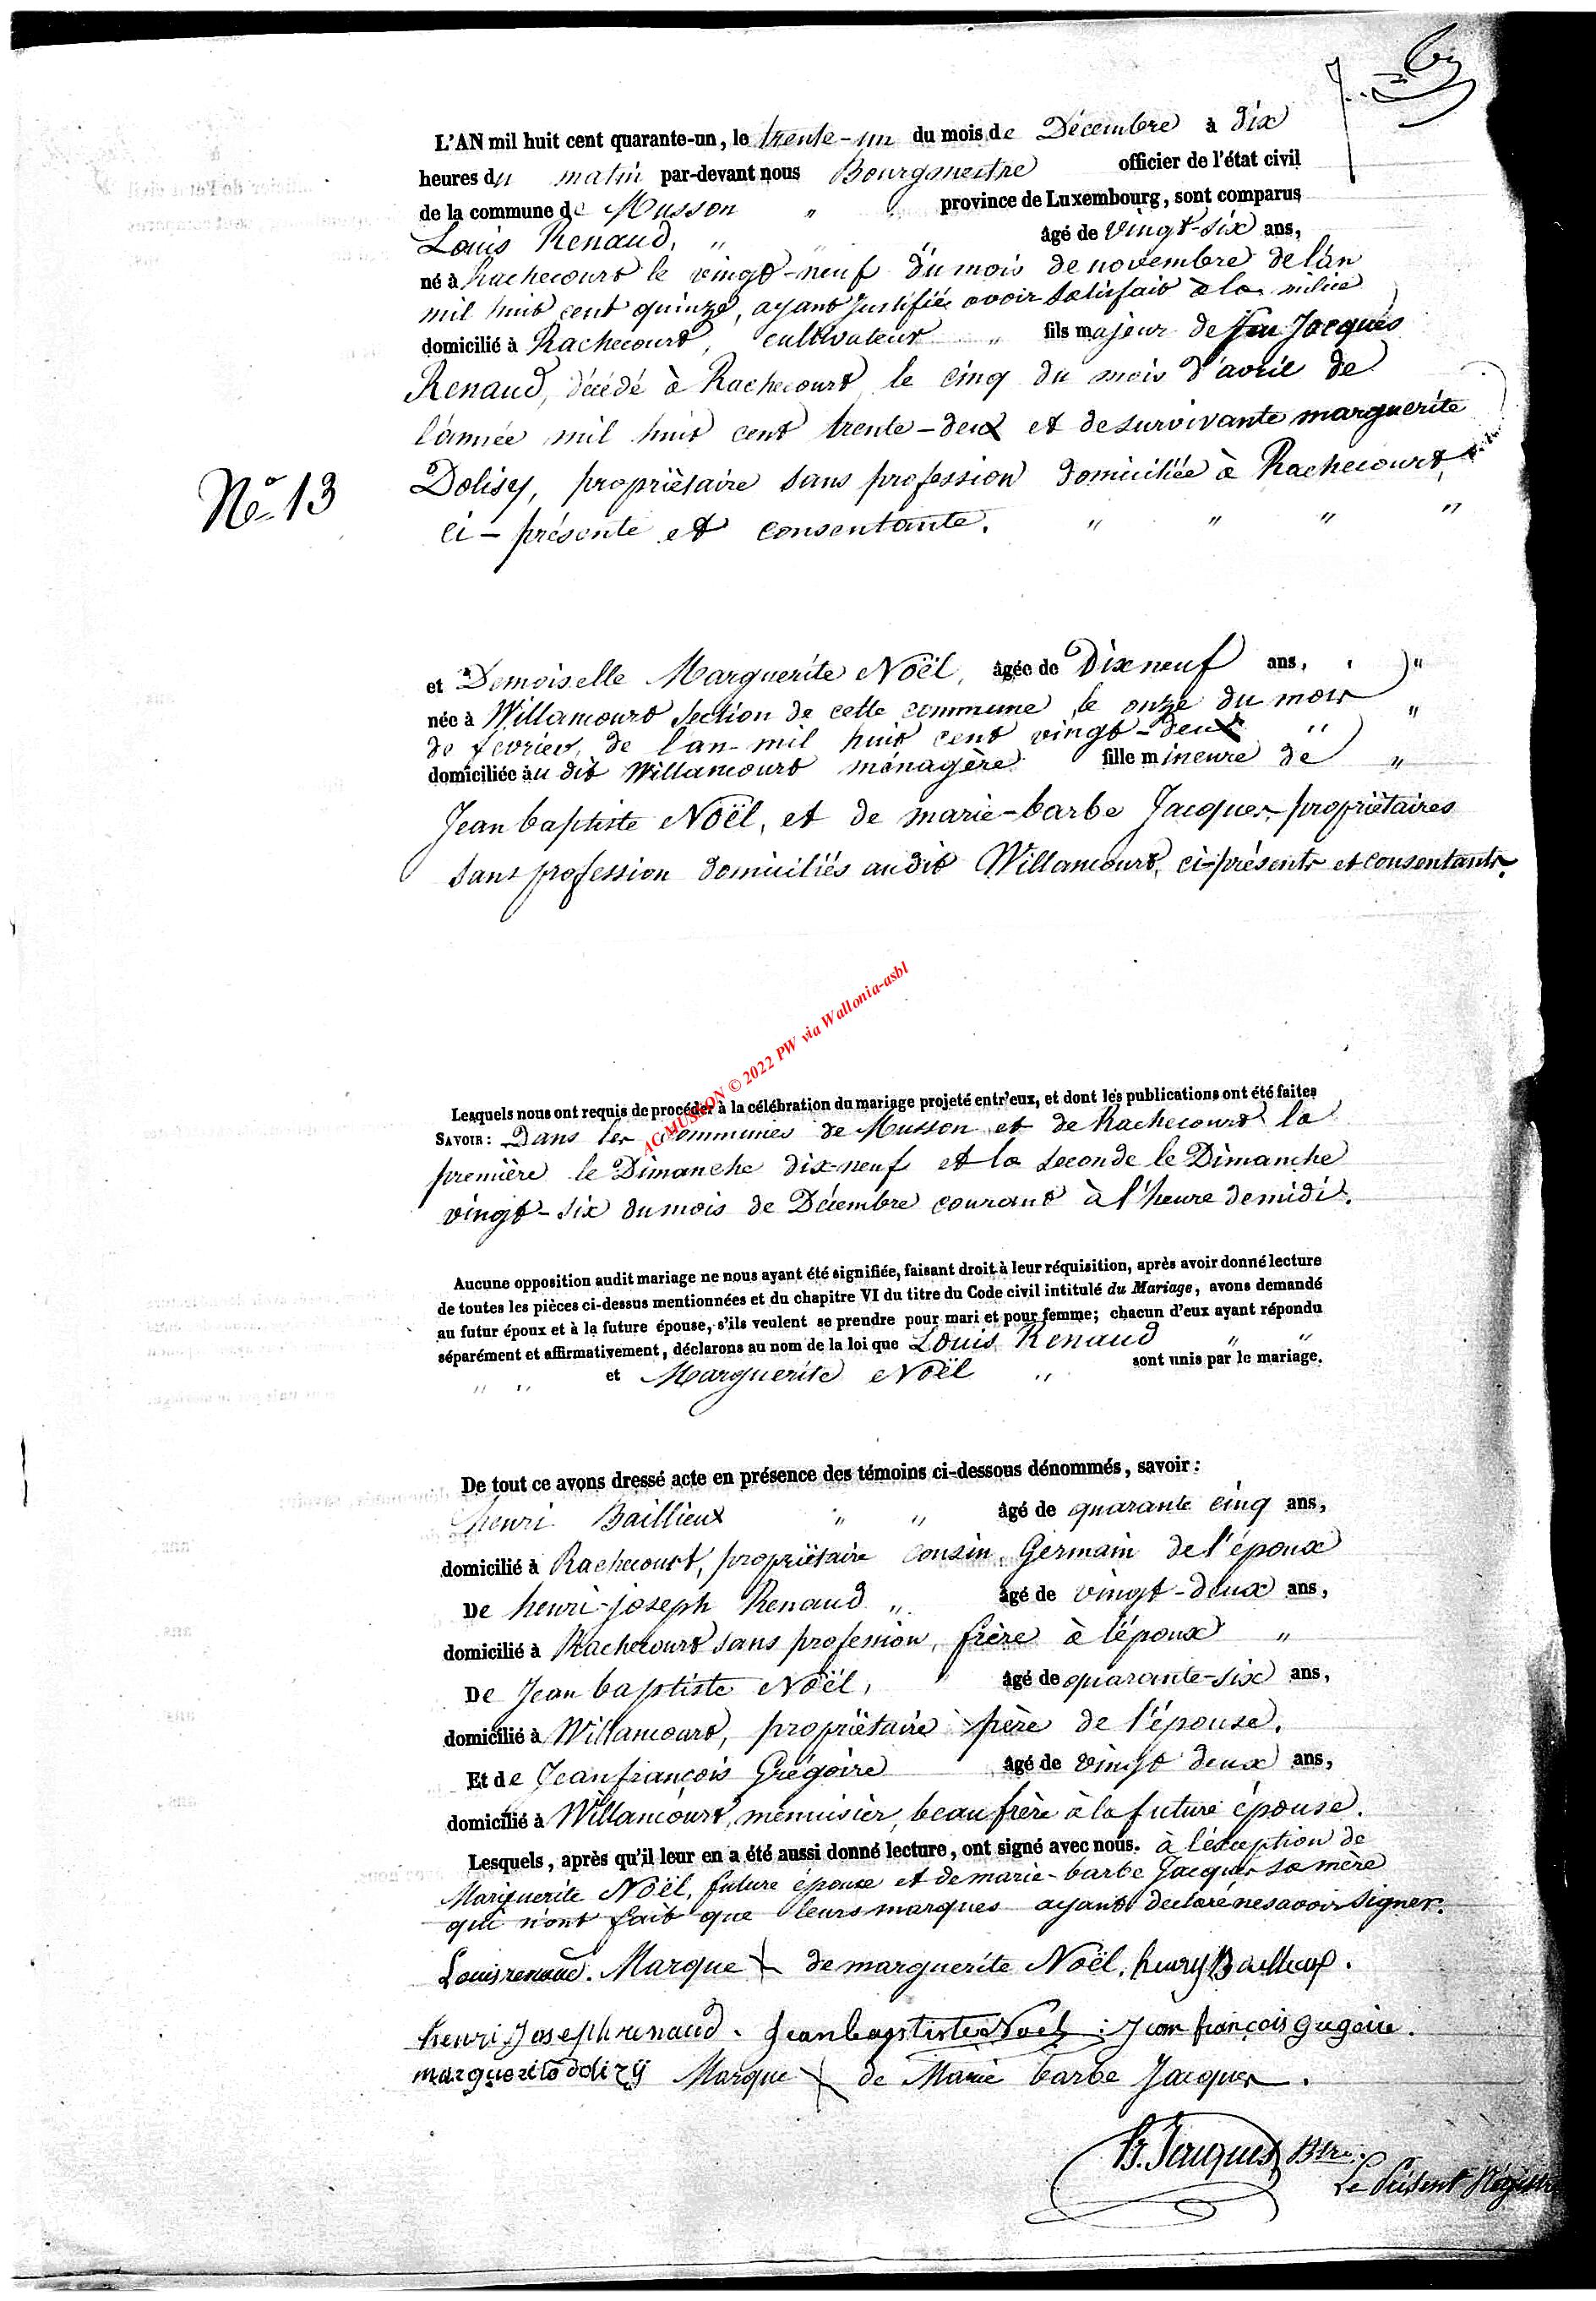 L'AN mil huit cent quarante-un, le trente-un du mois de Décembre à dix
heures du matin par-devant nous Bourgmestre officier de l'état civil
de la commune de Musson " province de Luxembourg, sont comparus
Louis Renaud, " " " âgé de vingt-six ans,
né à Rachecourt le vingt-neuf du mois de novembre de l'an
mil huit cent quinze, ayant justifié avoir satisfait à la milice
domicilié à Rachecourt, cultivateur " fils majeur de feu Jacques
Renaud, décédé à Rachecourt le cinq du mois d'avril de
l'année mil huit cent trente-deux et de survivante marguerite
Dolisy, propriètaire sans profession domiciliée à Rachecourt,
N° 13
ci-présente et consentante. " " " "
et Demoiselle Marguerite Noël, âgée de Dix neuf ans, "
née à Willancourt section de cette commune le onze du mois "
de fevrier de l'an mil huit cent vingt-deux "
domiciliée audit Willancourt ménagère fille mineure de "
Jean baptiste Noël, et de marie-barbe Jacques propriètaires
sans profession domiciliés audit Willancourt, ci-présents et consentants.
AC MUSSON © 2022 PW via Wallonia-asbl
Lesquels nous ont requis de procéder à la célébration du mariage projeté entr'eux, et dont les publications ont été faites
SAVOIR: Dans les communes de Musson et de Rachecourt la
première le Dimanche dix-neuf et la seconde le Dimanche
vingt-six du mois de Décembre courant à l'heure de midi.
Aucune opposition audit mariage ne nous ayant été signifiée, faisant droit à leur réquisition, après avoir donné lecture
de toutes les pièces ci-dessus mentionnées et du chapitre VI du titre du Code civil intitulé du Mariage, avons demandé
au futur époux et à la future épouse, s'ils veulent se prendre pour mari et pour femme; chacun d'eux ayant répondu
séparément et affirmativement, déclarons au nom de la loi que Louis Renaud " "
" " et Marguerite Noël " sont unis par le mariage.
De tout ce avons dressé acte en présence des témoins ci-dessous dénommés, savoir:
henri Baillieux " " âgé de quarante cinq ans,
domicilié à Rachecourt, propriètaire cousin Germain de l'époux
De henri-joseph Renaud " âgé de vingt-deux ans,
domicilié à Rachecourt sans profession, frère à l'époux "
De Jean baptiste Noël, " âgé de quarante-six ans,
domicilié à Willancourt, propriètaire père de l'épouse.
Et de Jean françois Grégoire âgé de vingt deux ans,
domicilié à Willancourt, menuisier, beau frère à la future épouse.
Lesquels, après qu'il leur en a été aussi donné lecture, ont signé avec nous. à l'exception de
Marguerite Noël, future épouse et de marie-barbe Jacques sa mère
qui n'ont fait que leurs marques ayant declaré ne savoir signer.
Louis renaud. Marque de marguerite Noël. henry Baillieux.
henri Joseph renaud. Jean baptiste Noel: Jean françois gregoire.
marguerite dolizy Marque de Marie barbe Jacques.
Jacques Btre.
Le Présent Régistre